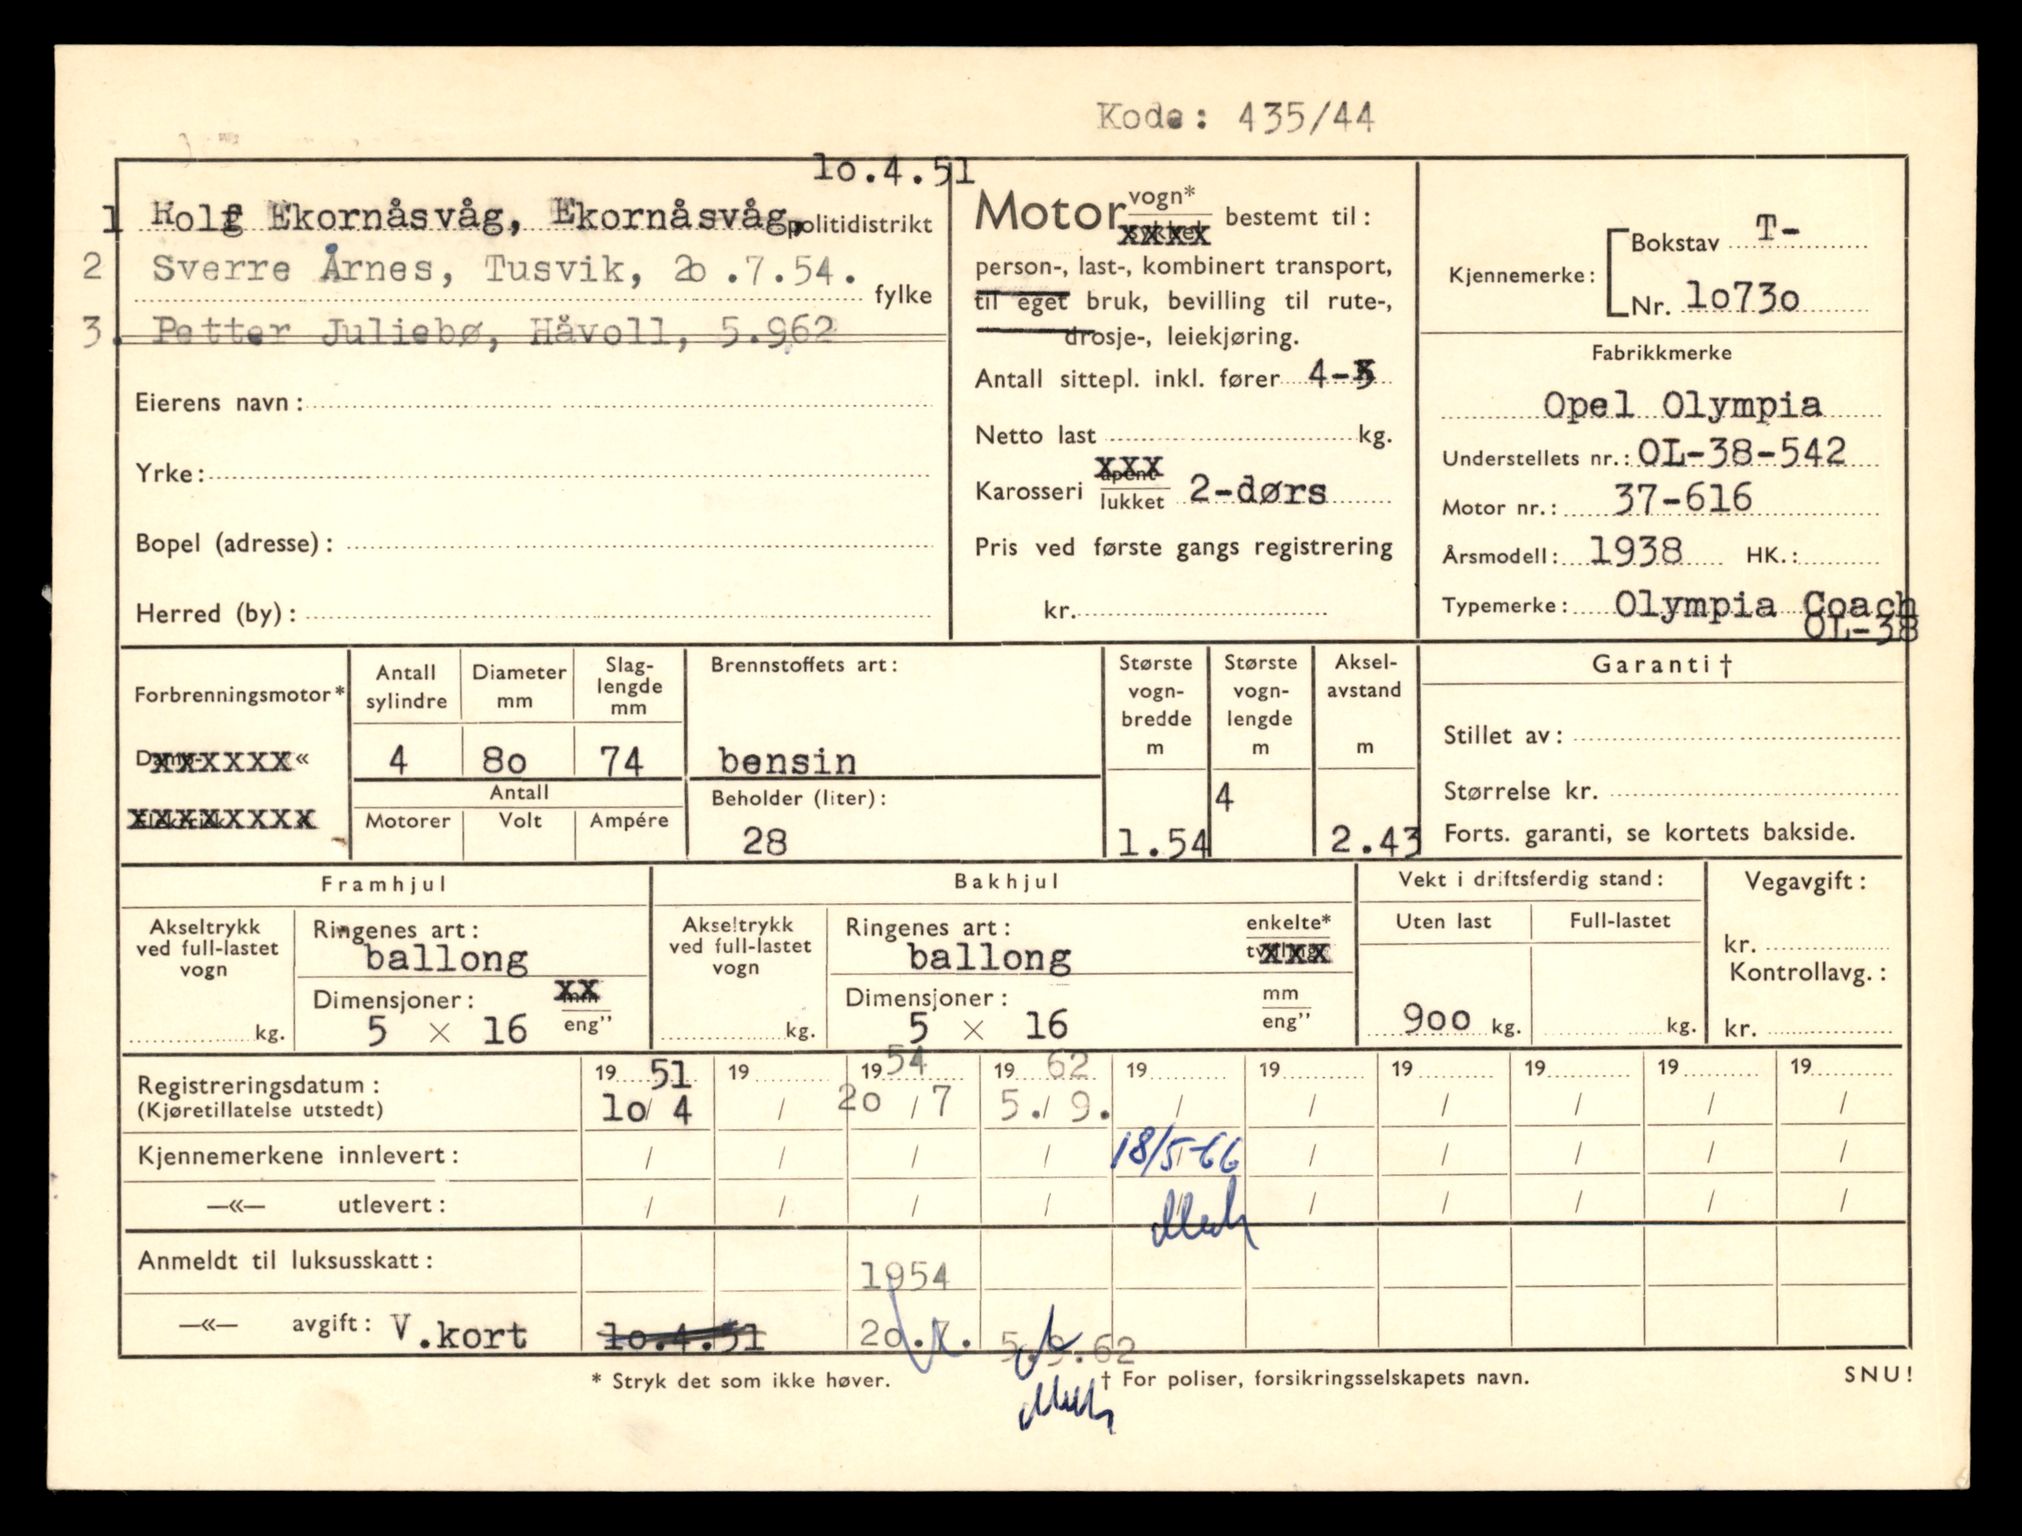 Kode: 435/44
lo.4.51
1 Rolf Ekornåsvåg, Ekornåsvåg, politidistrikt
2 Sverre Årnes, Tusvik, 2o .7.54.
fylke
3. Petter Juliebø, Håvoll, 5.962
Eierens navn:
Yrke:
Bopel (adresse):
Herred (by):
Motor vogn* bestemt til:
person-, last-, kombinert transport,
til eget bruk, bevilling til rute-,
drosje-, leiekjøring.
Antall sittepl. inkl. fører 4-5
Netto last kg.
xxx
åpent
Karosseri lukket 2-dørs
Pris ved første gangs registrering
kr.
Kjennemerke: Bokstav T-
Nr. lo73o
Fabrikkmerke
Opel Olympia
Understellets nr.: OL-38-542
Motor nr.: 37-616
Årsmodell: 1938 HK.:
Typemerke: Olympia Coach
OL-38
Forbrenningsmotor*
xxxxxx «
xxxxxxxx
Antall sylindre
Diameter mm
Slag-lengde mm
4 8o 74
Antall
Motorer Volt Ampére
Brennstoffets art:
bensin
Beholder (liter):
28
Største vogn-bredde m
1.54
Største vogn-lengde m
4
Aksel-avstand m
2.43
Garanti †
Stillet av:
Størrelse kr.
Forts. garanti, se kortets bakside.
Framhjul
Akseltrykk ved full-lastet vogn
kg.
Ringenes art:
ballong
Dimensjoner: xx mm
5 × 16 eng”
Bakhjul
Akseltrykk ved full-lastet vogn
kg.
Ringenes art: enkelte*
ballong xxx
Dimensjoner: mm
5 × 16 eng”
Vekt i driftsferdig stand:
Uten last Full-lastet
9oo kg. kg.
Vegavgift:
kr.
Kontrollavg.:
kr.
19 51 19 19 54 19 62 19 19 19 19 19 19
Registreringsdatum:
(Kjøretillatelse utstedt) lo/ 4 / 2o / 7 5./ 9. / / / / / /
Kjennemerkene innlevert: / / / / 18/5-66 / / / / /
—«— utlevert: / / / / / / / / / /
Anmeldt til luksusskatt: 1954
—«— avgift: V.kort lo.4.51 2o.7. 5.9.62
* Stryk det som ikke høver.
† For poliser, forsikringsselskapets navn.
SNU!